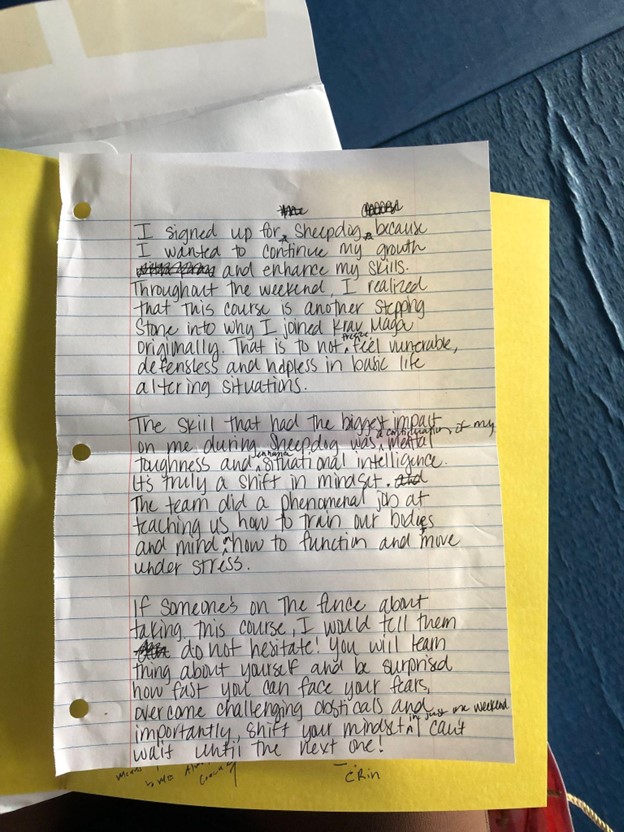 I signed up for Sheepdog because
I wanted to continue my growth
and enhance my skills.
Throughout the weekend, I realized
that this course is another stepping
stone into why I joined Krav Maga
originally. That is to not feel vunerable,
defensless and helpless in basic life
altering situations.
The skill that had the biggest impact
on me during Sheepdog was a continuation of my mental
toughness and situational intelligence.
It's truly a shift in mindset.
The team did a phenomenal job at
teaching us how to train our bodies
and mind how to function and move
under stress.
If someone's on the fence about
taking this course, I would tell them
do not hesitate! You will learn
thing about yourself and be surprised
how fast you can face your fears,
overcome challenging obsticals and
importantly, shift your mindset in just one weekend I can't
wait until the next one!
Erin